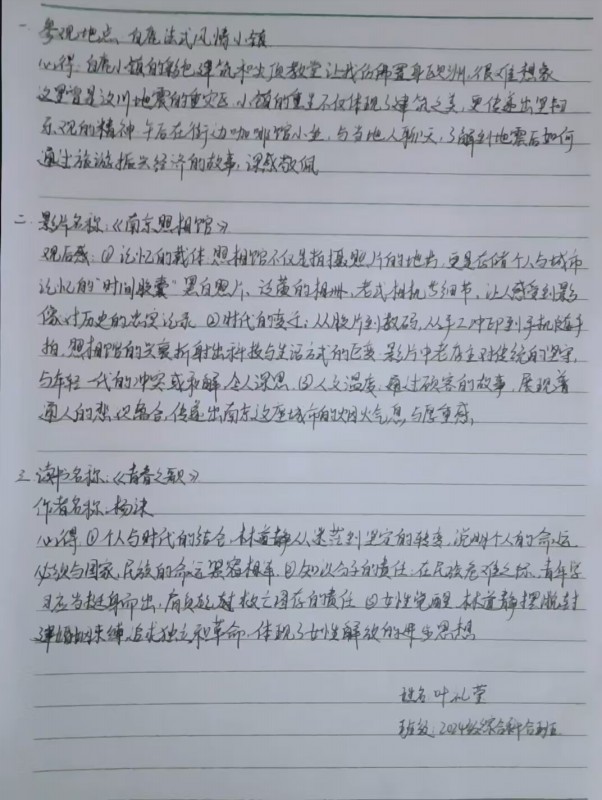 一、参观地点、白鹿法式风情小镇
心得:白鹿小镇的彩色建筑和尖顶教堂让我仿佛置身欧洲,很难想象
这里曾是汶川地震的重灾区,小镇的重生不仅体现了建筑之美,更传递出坚韧
乐观的精神,午后在街边咖啡馆小坐,与当地人聊天,了解到地震后如何
通过旅游振兴经济的故事,深感敬佩
二、影片名称:《南京照相馆》
观后感:①记忆的载体,照相馆不仅是拍摄照片的地方,更是存储个人与城市
记忆的“时间胶囊”黑白照片、泛黄的相册、老式相机等细节,让人感受到影
像对历史的忠实记录 ②时代的变迁:从胶片到数码,从手工冲印到手机随手
拍,照相馆的兴衰折射出科技与生活方式的巨变,影片中老店主对传统的坚守,
与年轻一代的冲突或和解,令人深思,③人文温度,通过顾客的故事,展现普
通人的悲欢离合,传递出南京这座城市的烟火气息与厚重感,
三、读书名称:《青春之歌》
作者名称、杨沫
心得:①个人与时代的结合,林道静从迷茫到坚定的转变,说明个人的命运
必须与国家、民族的命运紧密相连 ②知识分子的责任:在民族危难之际,青年学
习应当挺身而出,肩负起救亡图存的责任 ③女性觉醒,林道静摆脱封
建婚姻束缚,追求独立和革命,体现了女性解放的进步思想
姓名 叶礼莹
班级:2024级综合种合班